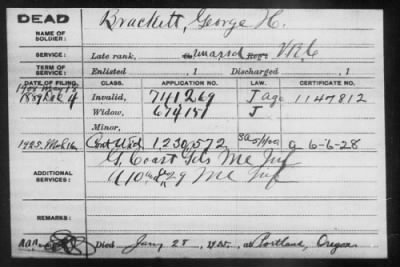 DEAD
NAME OF SOLDIER:
Brackett, George H.
SERVICE:
Late rank, Unassd Reg't V.R.C
TERM OF SERVICE:
Enlisted , 1 Discharged , 1
DATE OF FILING. CLASS. APPLICATION NO. LAW. CERTIFICATE NO.
Invalid, 741269 J 1147812
Widow, 674151 J
Minor,
1925. Mch 16 1,230,572 6-6-28
ADDITIONAL SERVICES:
G. Coast Gds Me Inf
A 10 & 29 Me Inf
REMARKS:
Died Jany 28, 1925, at Portland, Oregon